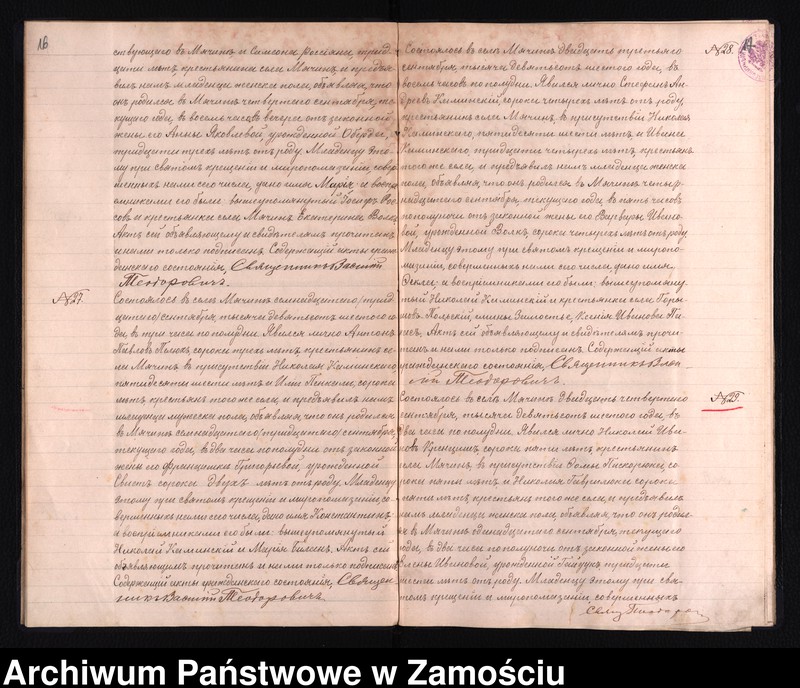 16
ствующаго въ Мячинѣ и Симеона Россіяни, трид-
цати лѣтъ, крестьянина села Мячинъ, и предъя-
вилъ намъ младенца женска пола, объявляя, что
онъ родился въ Мячинѣ четвертаго сентября, те-
кущаго года, въ восемь часовъ вечера отъ законной
жены его Анны Яковлевой, урожденной
тридцати трехъ лѣтъ отъ роду. Младенцу это-
му при святомъ крещеніи и миропомазаніи, совер-
шенныхъ нами сего числа, дано имя Марія, а воспрі-
емниками его были: вышеупомянутый
и крестьянка села Мячинъ Екатерина
Актъ сей объявляющему и свидѣтелямъ прочитанъ
и нами только подписанъ. Содержащій акты граж-
данскаго состоянія, Священникъ Василій
Теодоровичъ.
№27.
Состоялось въ селѣ Мячинѣ семнадцатаго /трид-
цатаго/ сентября, тысяча девятьсотъ шестого го-
да, въ три часа по полудни. Явился лично Антонъ
Павловъ сорока трехъ лѣтъ крестьянинъ се-
ла Мячинъ, въ присутствіи Николая Калинскаго
пятидесяти шести лѣтъ и Ильи сорока
лѣтъ крестьянъ того же села, и предъявилъ намъ
младенца мужеска пола, объявляя, что онъ родился
въ Мячинѣ семнадцатаго /тридцатаго/ сентября,
текущаго года, въ два часа по полудни отъ законной
жены его Францишки Григорьевой, урожденной
сорока двухъ лѣтъ отъ роду. Младенцу
этому при святомъ крещеніи и миропомазаніи, со-
вершенныхъ нами сего числа, дано имя Константинъ,
а воспріемниками его были: вышеупомянутый
Николай Калинскій и Марья Актъ сей
объявляющимъ прочитанъ и нами только подписанъ
Содержащій акты гражданскаго состоянія, Священ-
никъ Василій Теодоровичъ
17
№28.
Состоялось въ селѣ Мячинѣ двадцать третьяго
сентября, тысяча девятьсотъ шестого года, въ
восемь часовъ по полудни. Явился лично Стефанъ Ан-
дреевъ Калинскій, сорока четырехъ лѣтъ отъ роду,
крестьянинъ села Мячинъ, въ присутствіи Николая
Калинскаго, пятидесяти шести лѣтъ и Ивана
Калинскаго, тридцати четырехъ лѣтъ, крестьянъ
того же села, и предъявилъ намъ младенца женска
пола, объявляя, что онъ родился въ Мячинѣ четыр-
надцатаго сентября, текущаго года, въ пять часовъ
пополуночи отъ законной жены его Варвары Ивано-
вой, урожденной Волкъ, сорока четырехъ лѣтъ отъ роду
Младенцу этому при святомъ крещеніи и миропо-
мазаніи, совершенныхъ нами сего числа, дано имя
Ѳекла, а воспріемниками его были: вышеупомяну-
тый Николай Калинскій и крестьянка села
Ксенія Иванова
Актъ сей объявляющему и свидѣтелямъ прочи-
танъ и нами только подписанъ. Содержащій акты
гражданскаго состоянія, Священникъ Васи-
лій Теодоровичъ.
№29.
Состоялось въ селѣ Мячинѣ двадцать четвертаго
сентября, тысяча девятьсотъ шестого года, въ
два часа по полудни. Явился лично Николай Ива-
новъ сорока пяти лѣтъ крестьянинъ
села Мячинъ, въ присутствіи Ѳомы Пискорскаго, со-
рока пяти лѣтъ и Николая Гаврилюка сорока
пяти лѣтъ, крестьянъ того же села, и предъявилъ
намъ младенца женска пола, объявляя, что онъ родил-
ся въ Мячинѣ одинадцатаго сентября, текущаго
года, въ два часа пополуночи отъ законной жены его
Елены Ивановой, урожденной тридцати
шести лѣтъ отъ роду. Младенцу этому при свя-
томъ крещеніи и миропомазаніи совершенныхъ
Archiwum Państwowe w Zamościu